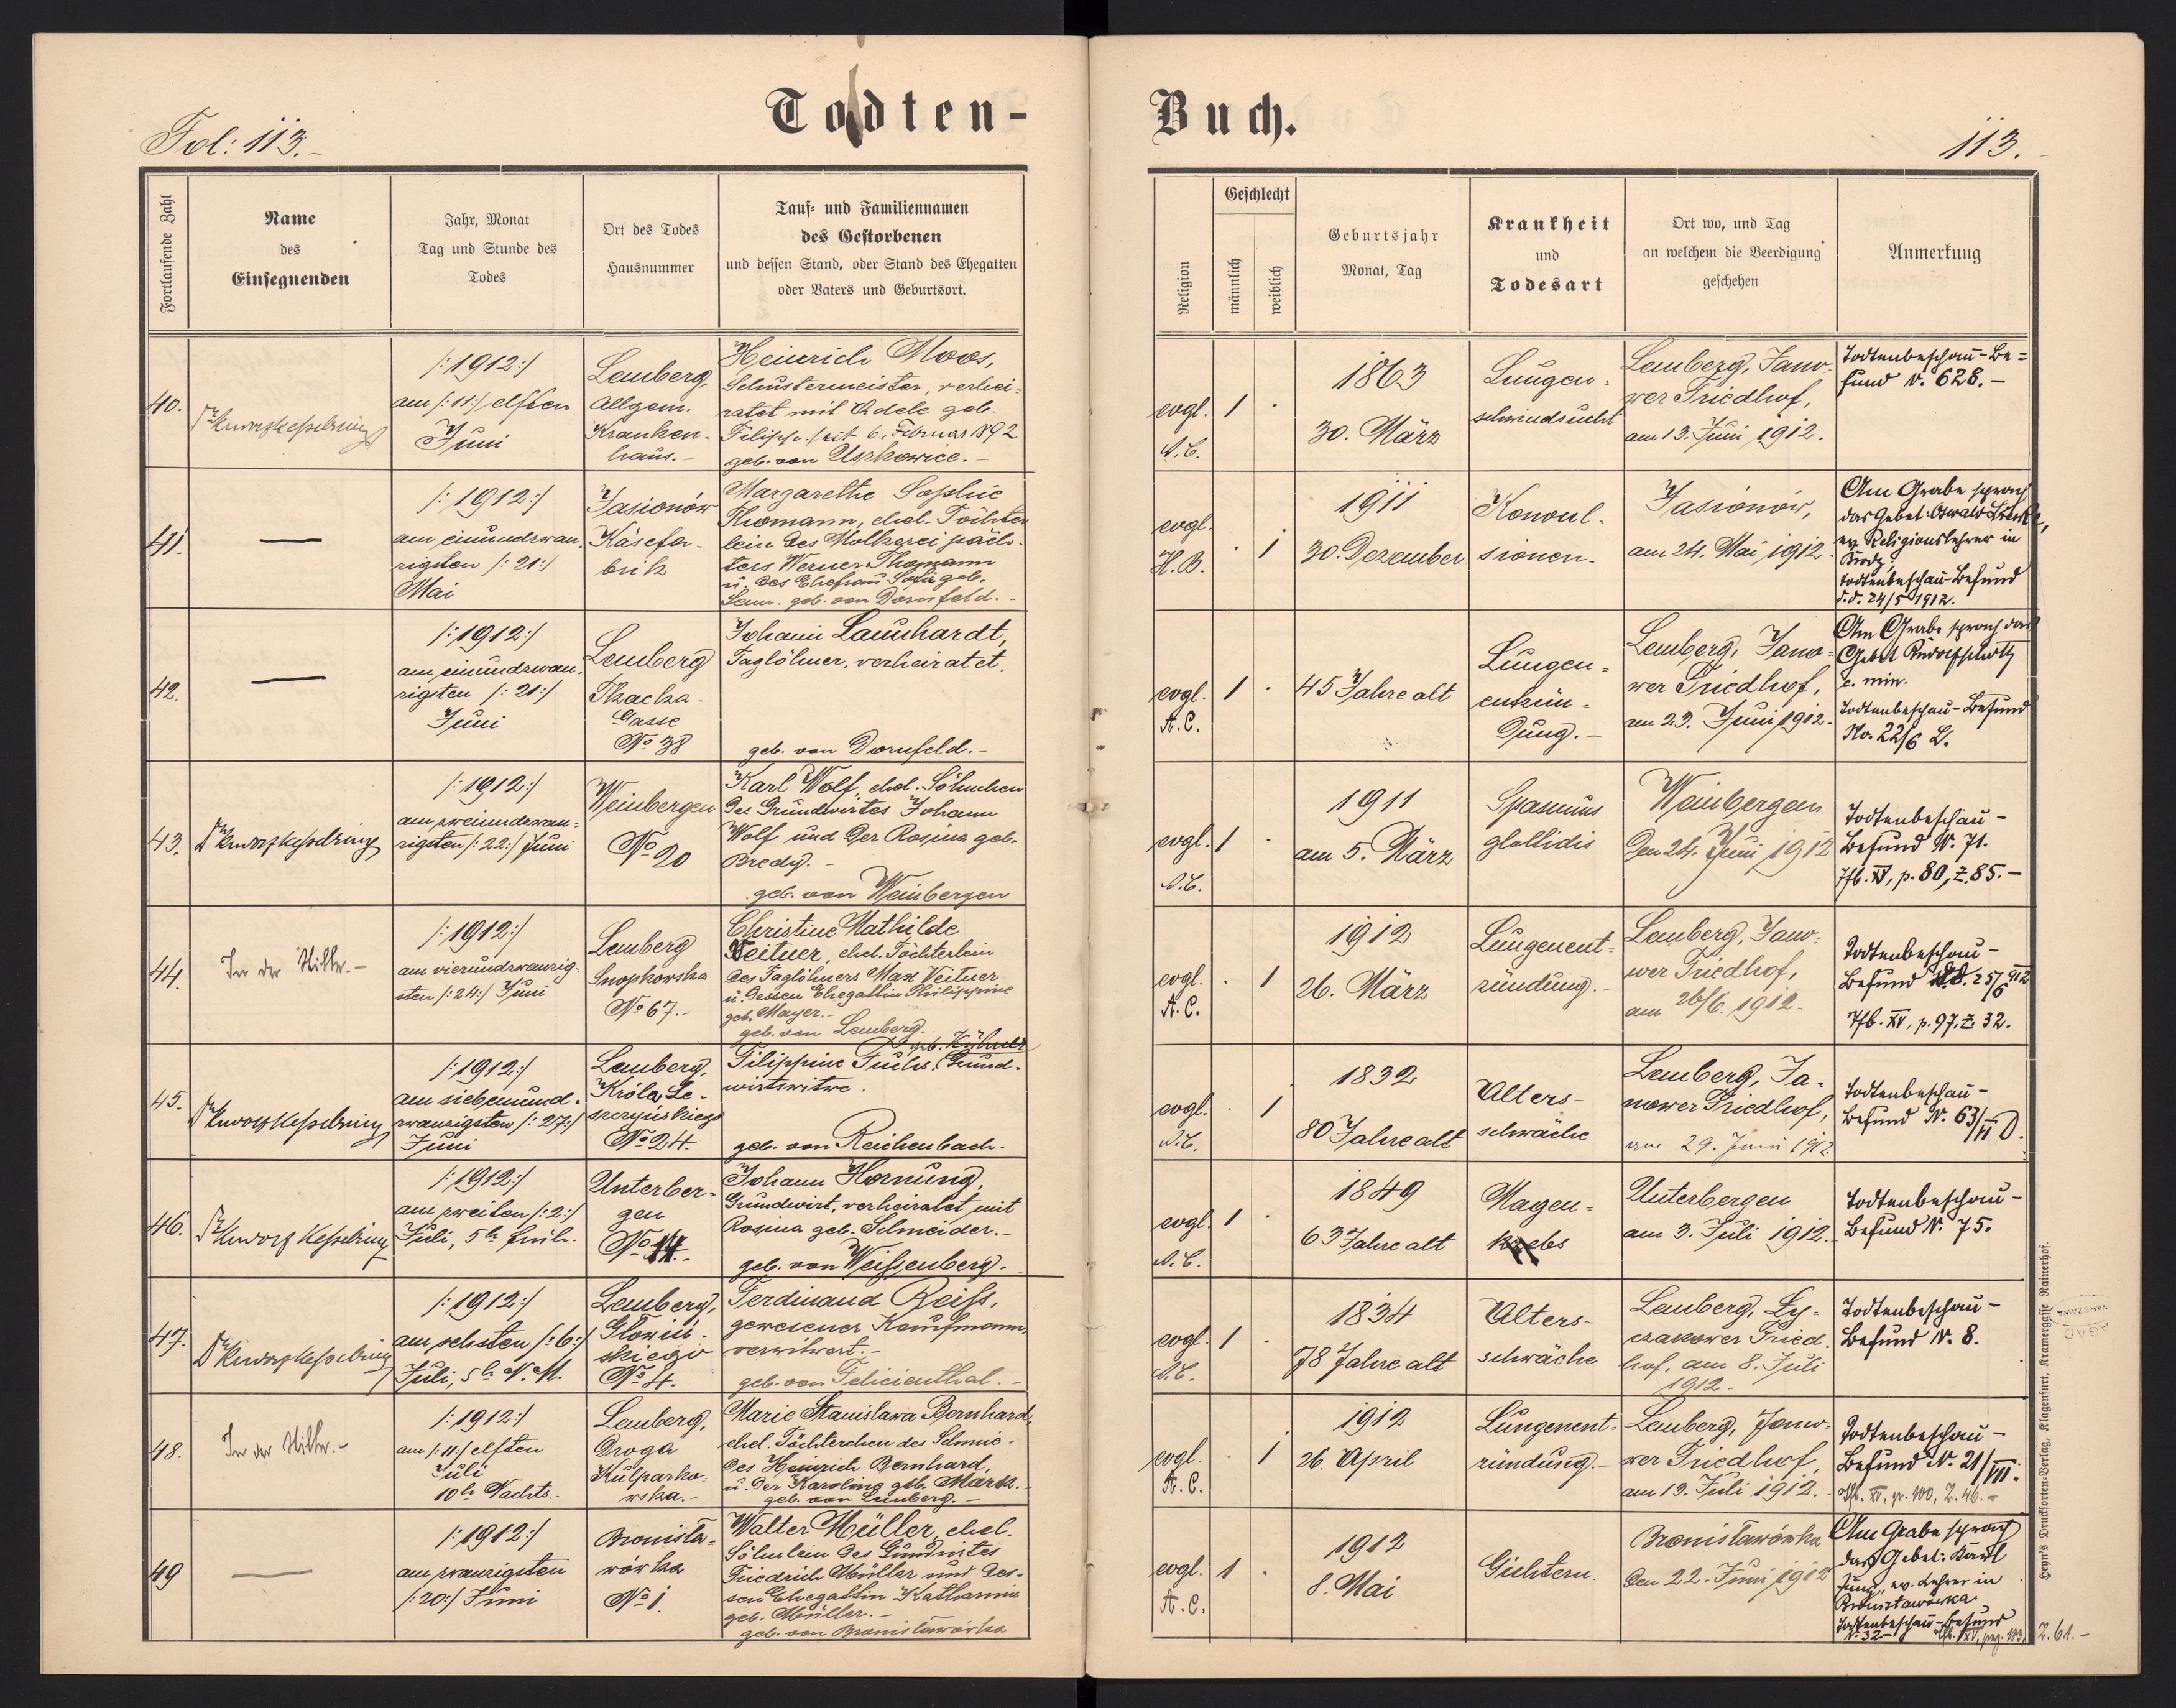 Todten-
Buch.
Fol: 113.-
113.
Fortlaufende Zahl
Name
des
Einsegnenden
Jahr, Monat
Tag und Stunde des
Todes
Ort des Todes
Hausnummer
Tauf- und Familiennamen
des Gestorbenen
und dessen Stand, oder Stand des Ehegatten
oder Vaters und Geburtsort.
Religion
Geschlecht
männlich
weiblich
Geburtsjahr
Monat, Tag
Krankheit
und
Todesart
Ort wo, und Tag
an welchem die Beerdigung
geschehen
Anmerkung
40.
Dr Rudolf Kesselring
/:1912:/
am /:11:/ elften
Juni
Lemberg,
Allgem.
Kranken-
haus.-
Heinrich Moos,
Schustermeister, verhei-
ratet mit Adele geb.
seit 6. Februar 1892
geb. von Uszkowice.-
evgl.
A.C.
1
1863
30. März
Lungen-
schwindsucht
Lemberg, Jano-
wer Friedhof,
am 13. Juni 1912.
Todtenbeschau-Be=
fund N. 628.-
41.
—
/:1912:/
am einundzwan-
zigsten /:21:/
Mai
Jasionów
Käsefa-
brik
Margarethe Sophie
Thomann, ehel. Töchter
lein des Molkereipäch-
ters Werner Thomann
u. des Ehefrau Sofie geb.
geb. von Dornfeld.-
evgl.
H.B.
1
1911
30. Dezember
Konvul-
sionen.
Jasionów,
am 24. Mai 1912.
Am Grabe sprach
das Gebet: Oswald
ev. Religionslehrer in
Brody,
Todtenbeschau-Befund
d.d. 24/5 1912.
42.
—
/:1912:/
am einundzwan-
zigsten /:21:/
Juni
Lemberg
Tkacka-
Gasse
No 38
Johann Launhardt,
Taglöhner, verheiratet.
geb. von Dornfeld.-
evgl.
A.C.
1
45 Jahre alt
Lungen=
entzün-
dung.-
Lemberg, Jano=
wer Friedhof,
am 23. Juni 1912.
Am Grabe sprach das
Gebet Rudolf
c. min.
Todtenbeschau-Befund
No. 22/6 L.
43.
Dr Rudolf Kesselring
/:1912:/
am zweiundzwan-
zigsten /:22:/ Juni
Weinbergen
No 20
Karl Wolf, ehel. Söhnchen
des Grundwirtes Johann
Wolf und der Rosina geb.
Bredy.-
geb. von Weinbergen
evgl.
A.C.
1
1911
am 5. März
Spasmus
glottidis
Weinbergen
den 24. Juni 1912
Todtenbeschau-
Befund N. 71.
Tfb. XV, p. 80, Z. 85.-
44.
In der Stille.-
/:1912:/
am vierundzwanzig-
sten /:24:/ Juni
Lemberg
Snopkowska
No 67.-
Christine Mathilde
Veitner, ehel. Töchterlein
des Taglöhners Max Veitner
u. dessen Ehegattin Philippine
geb. Mayer.-
geb. von Lemberg.-
evgl.
A.C.
1
1912
26. März
Lungenent-
zündung.-
Lemberg, Jano-
wer Friedhof,
am 26/6. 1912.
Todtenbeschau-
Befund d.d. 25/6 912
Tfb. XV, p. 97. Z. 32.
45.
Dr Rudolf Kesselring
/:1912:/
am siebenund-
zwanzigsten /:27:/
Juni
Lemberg,
Króla Le-
szczyńskiego
No 24.
geb. Hübner
Filippine Fuchs, Grund-
wirtswitwe.
geb. von Reichenbach.
evgl.
A.C.
1
1832
80 Jahre alt
Alters-
schwäche
Lemberg, Ja-
nower Friedhof,
am 29. Juni 1912.
Todtenbeschau-
Befund N. 63/VI D.
46.
Dr Rudolf Kesselring
/:1912:/
am zweiten /:2:/
Juli, 5h früh.
Unterber-
gen
No 14.-
Johann Hornung,
Grundwirt, verheiratet mit
Rosina geb. Schneider.-
geb. von Weissenberg.
evgl.
A.C.
1
1849
63 Jahre alt
Magen-
krebs
Unterbergen
am 3. Juli 1912.
Todtenbeschau-
Befund N. 75.
47.
Dr Rudolf Kesselring
/:1912:/
am sechsten /:6:/
Juli, 5h N.M.
Lemberg,
Głowiń-
skiego
No 4.
Ferdinand Reiss,
gewesener Kaufmann,
verwitwet.-
geb. von Felicienthal.-
evgl.
A.C.
1
1834
78 Jahre alt
Alters-
schwäche
Lemberg, Ly-
czakower Fried-
hof, am 8. Juli
1912.-
Todtenbeschau-
Befund N. 8.
48.
In der Stille.-
/:1912:/
am /:11:/ elften
Juli
10h Nachts.-
Lemberg,
Droga
Kulparko-
wska.-
Marie Stanislawa Bernhard,
ehel. Töchterchen des Schmie-
des Heinrich Bernhard,
u. der Karolina geb. Marsz.
geb. von Lemberg.-
evgl.
A.C.
1
1912
26. April
Lungenent-
zündung.-
Lemberg, Jano-
wer Friedhof,
am 13. Juli 1912.
Todtenbeschau-
Befund N. 21/VII.
Tfb. XV, p. 100, Z. 46.-
49
—
/:1912:/
am zwanzigsten
/:20:/ Juni
Bronisła-
wówka
No 1.
Walter Müller, ehel.
Söhnlein des Grundwirtes
Friedrich Müller und des-
sen Ehegattin Katharina
geb. Müller.-
geb. von Bronisławówka
evgl.
A.C.
1
1912
8. Mai
Gichtern.
Bronisławówka
den 22. Juni 1912
Am Grabe sprach
das Gebet: Karl
Jung, ev. Lehrer in
Bronisławówka.
Todtenbeschau-Befund
N. 32- Tfb. XV, pag. 103. Z. 61.-
Heyn's Drucksorten-Verlag, Klagenfurt, Kramergasse Rainerhof.
AGAD
WARSZAWA